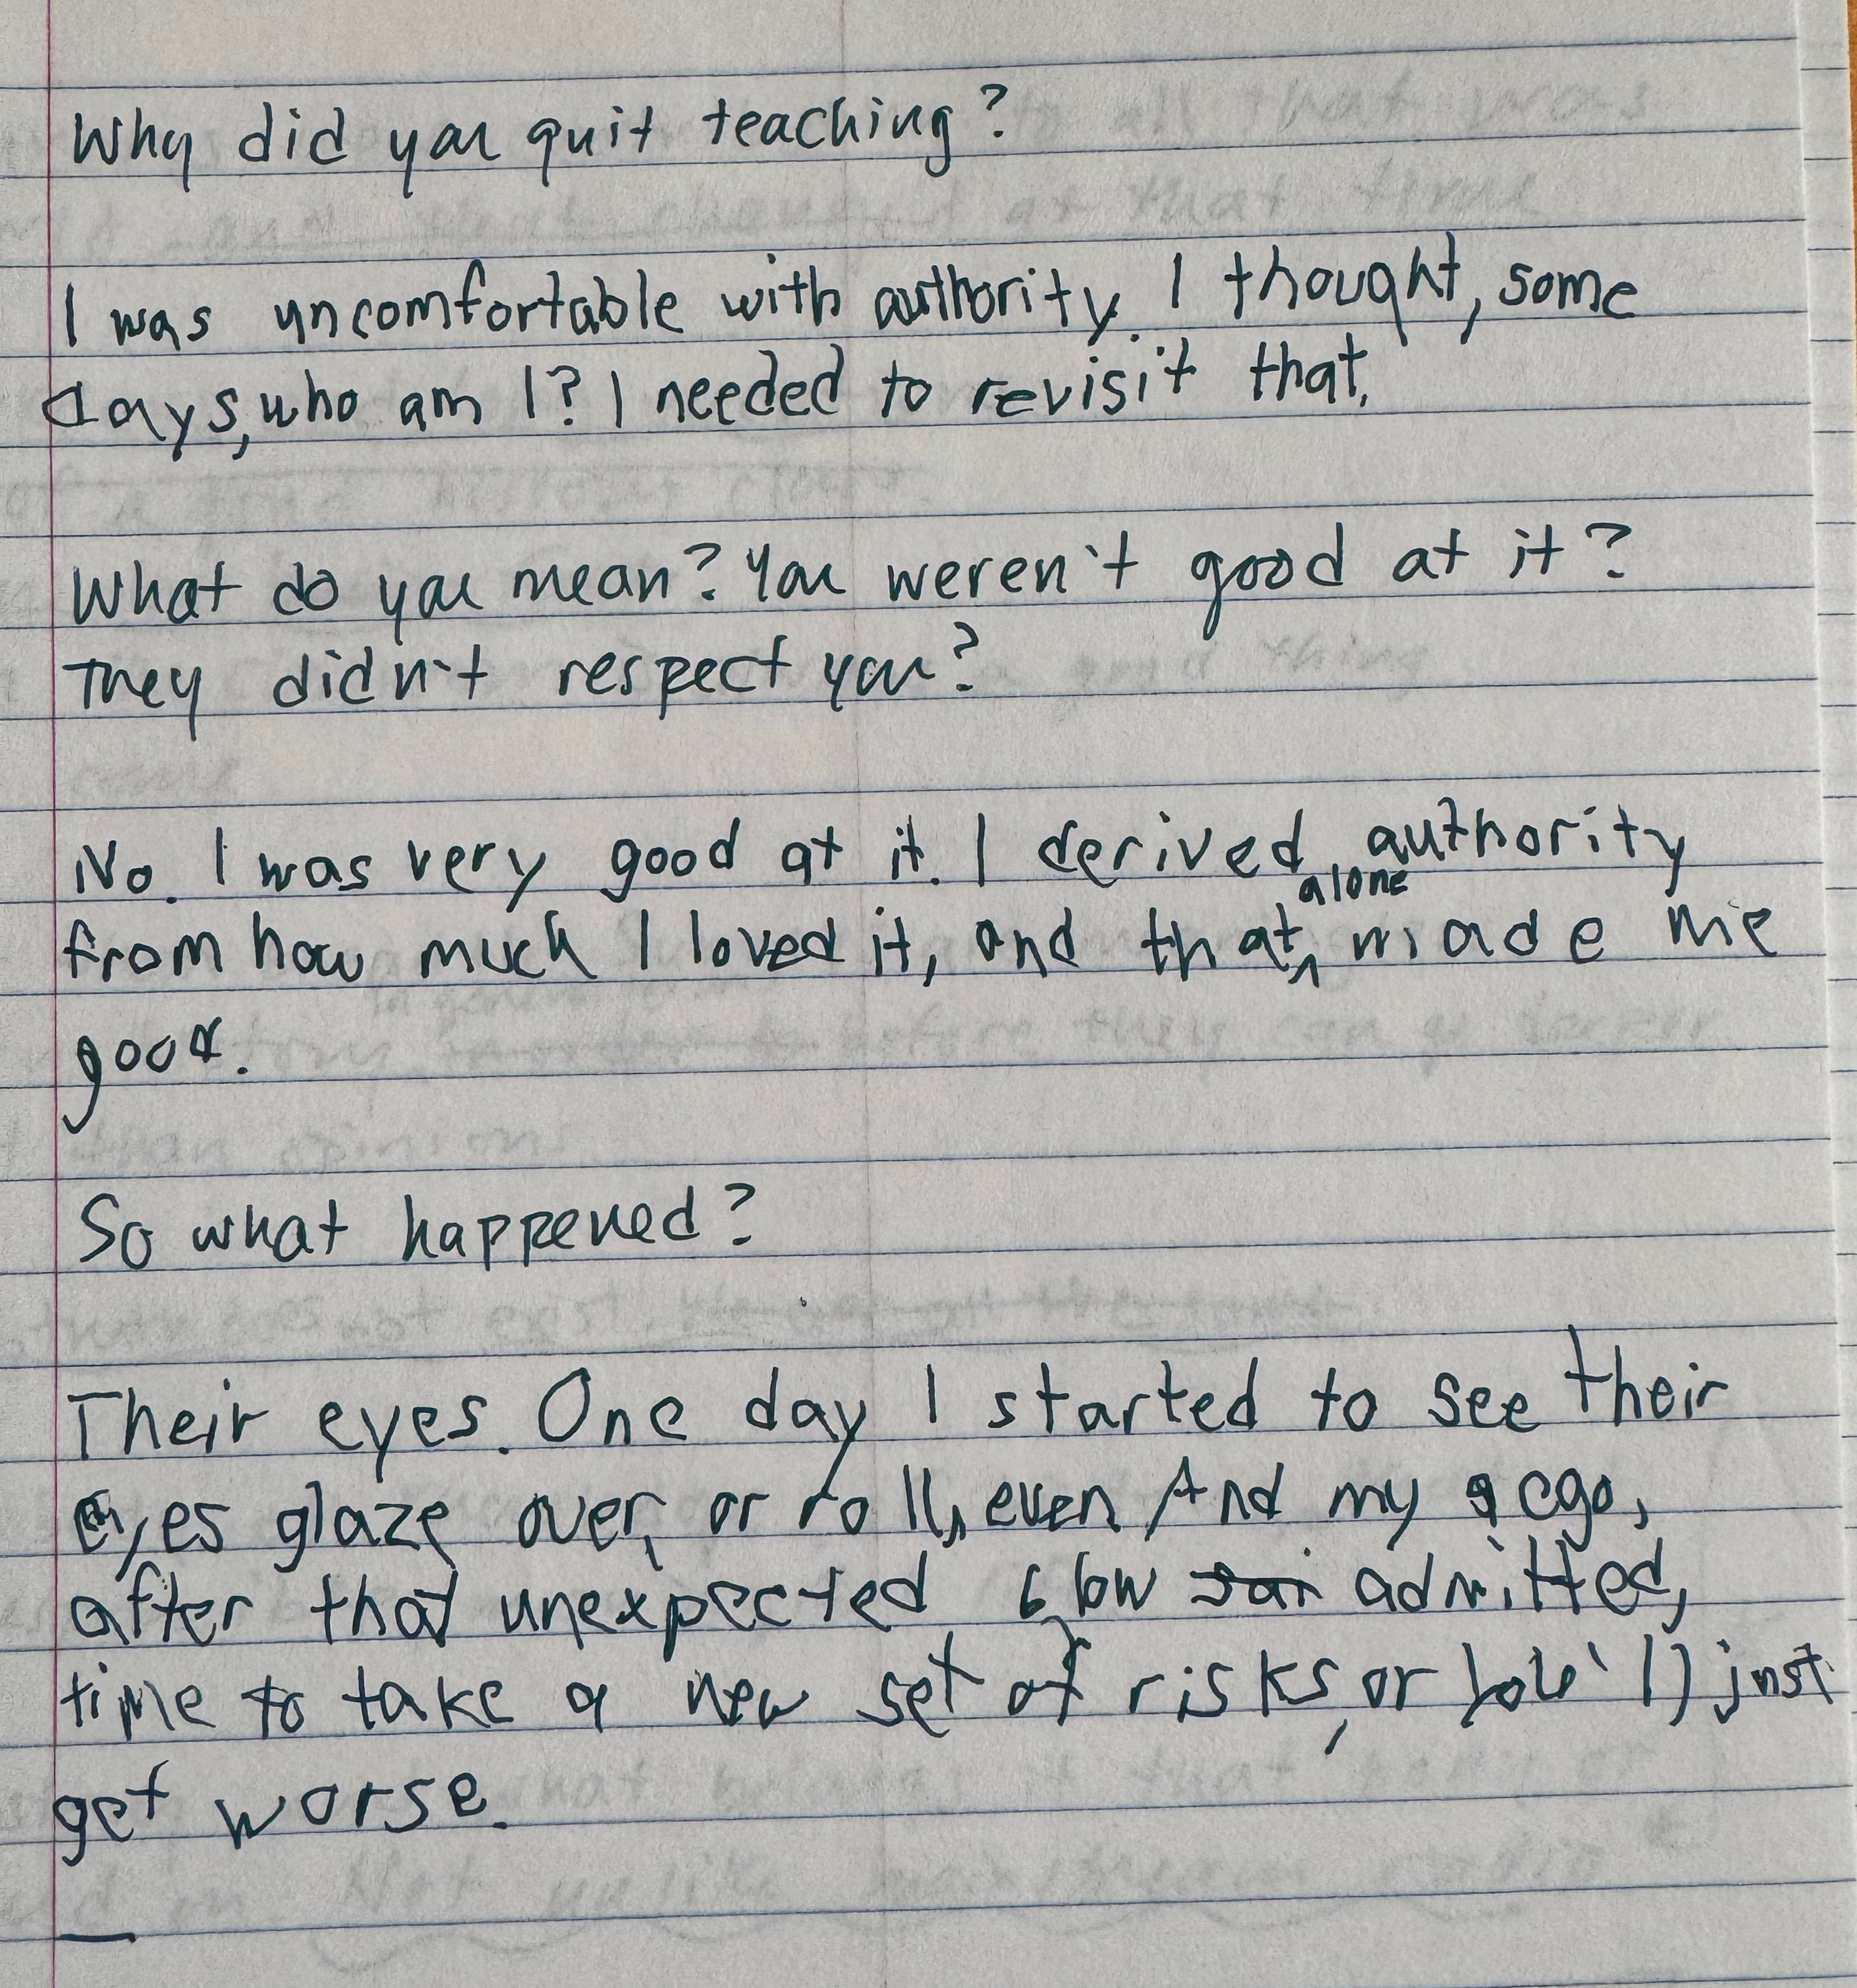 Why did you quit teaching?
I was uncomfortable with authority. I thought, some
days, who am I? I needed to revisit that.
What do you mean? You weren't good at it?
They didn't respect you?
No. I was very good at it. I derived authority
from how much I loved it, and that alone made me
good.
So what happened?
Their eyes. One day I started to see their
eyes glaze over, or roll, even. And my ego,
after that unexpected blow admitted,
time to take a new set of risks, or you'll just
get worse.